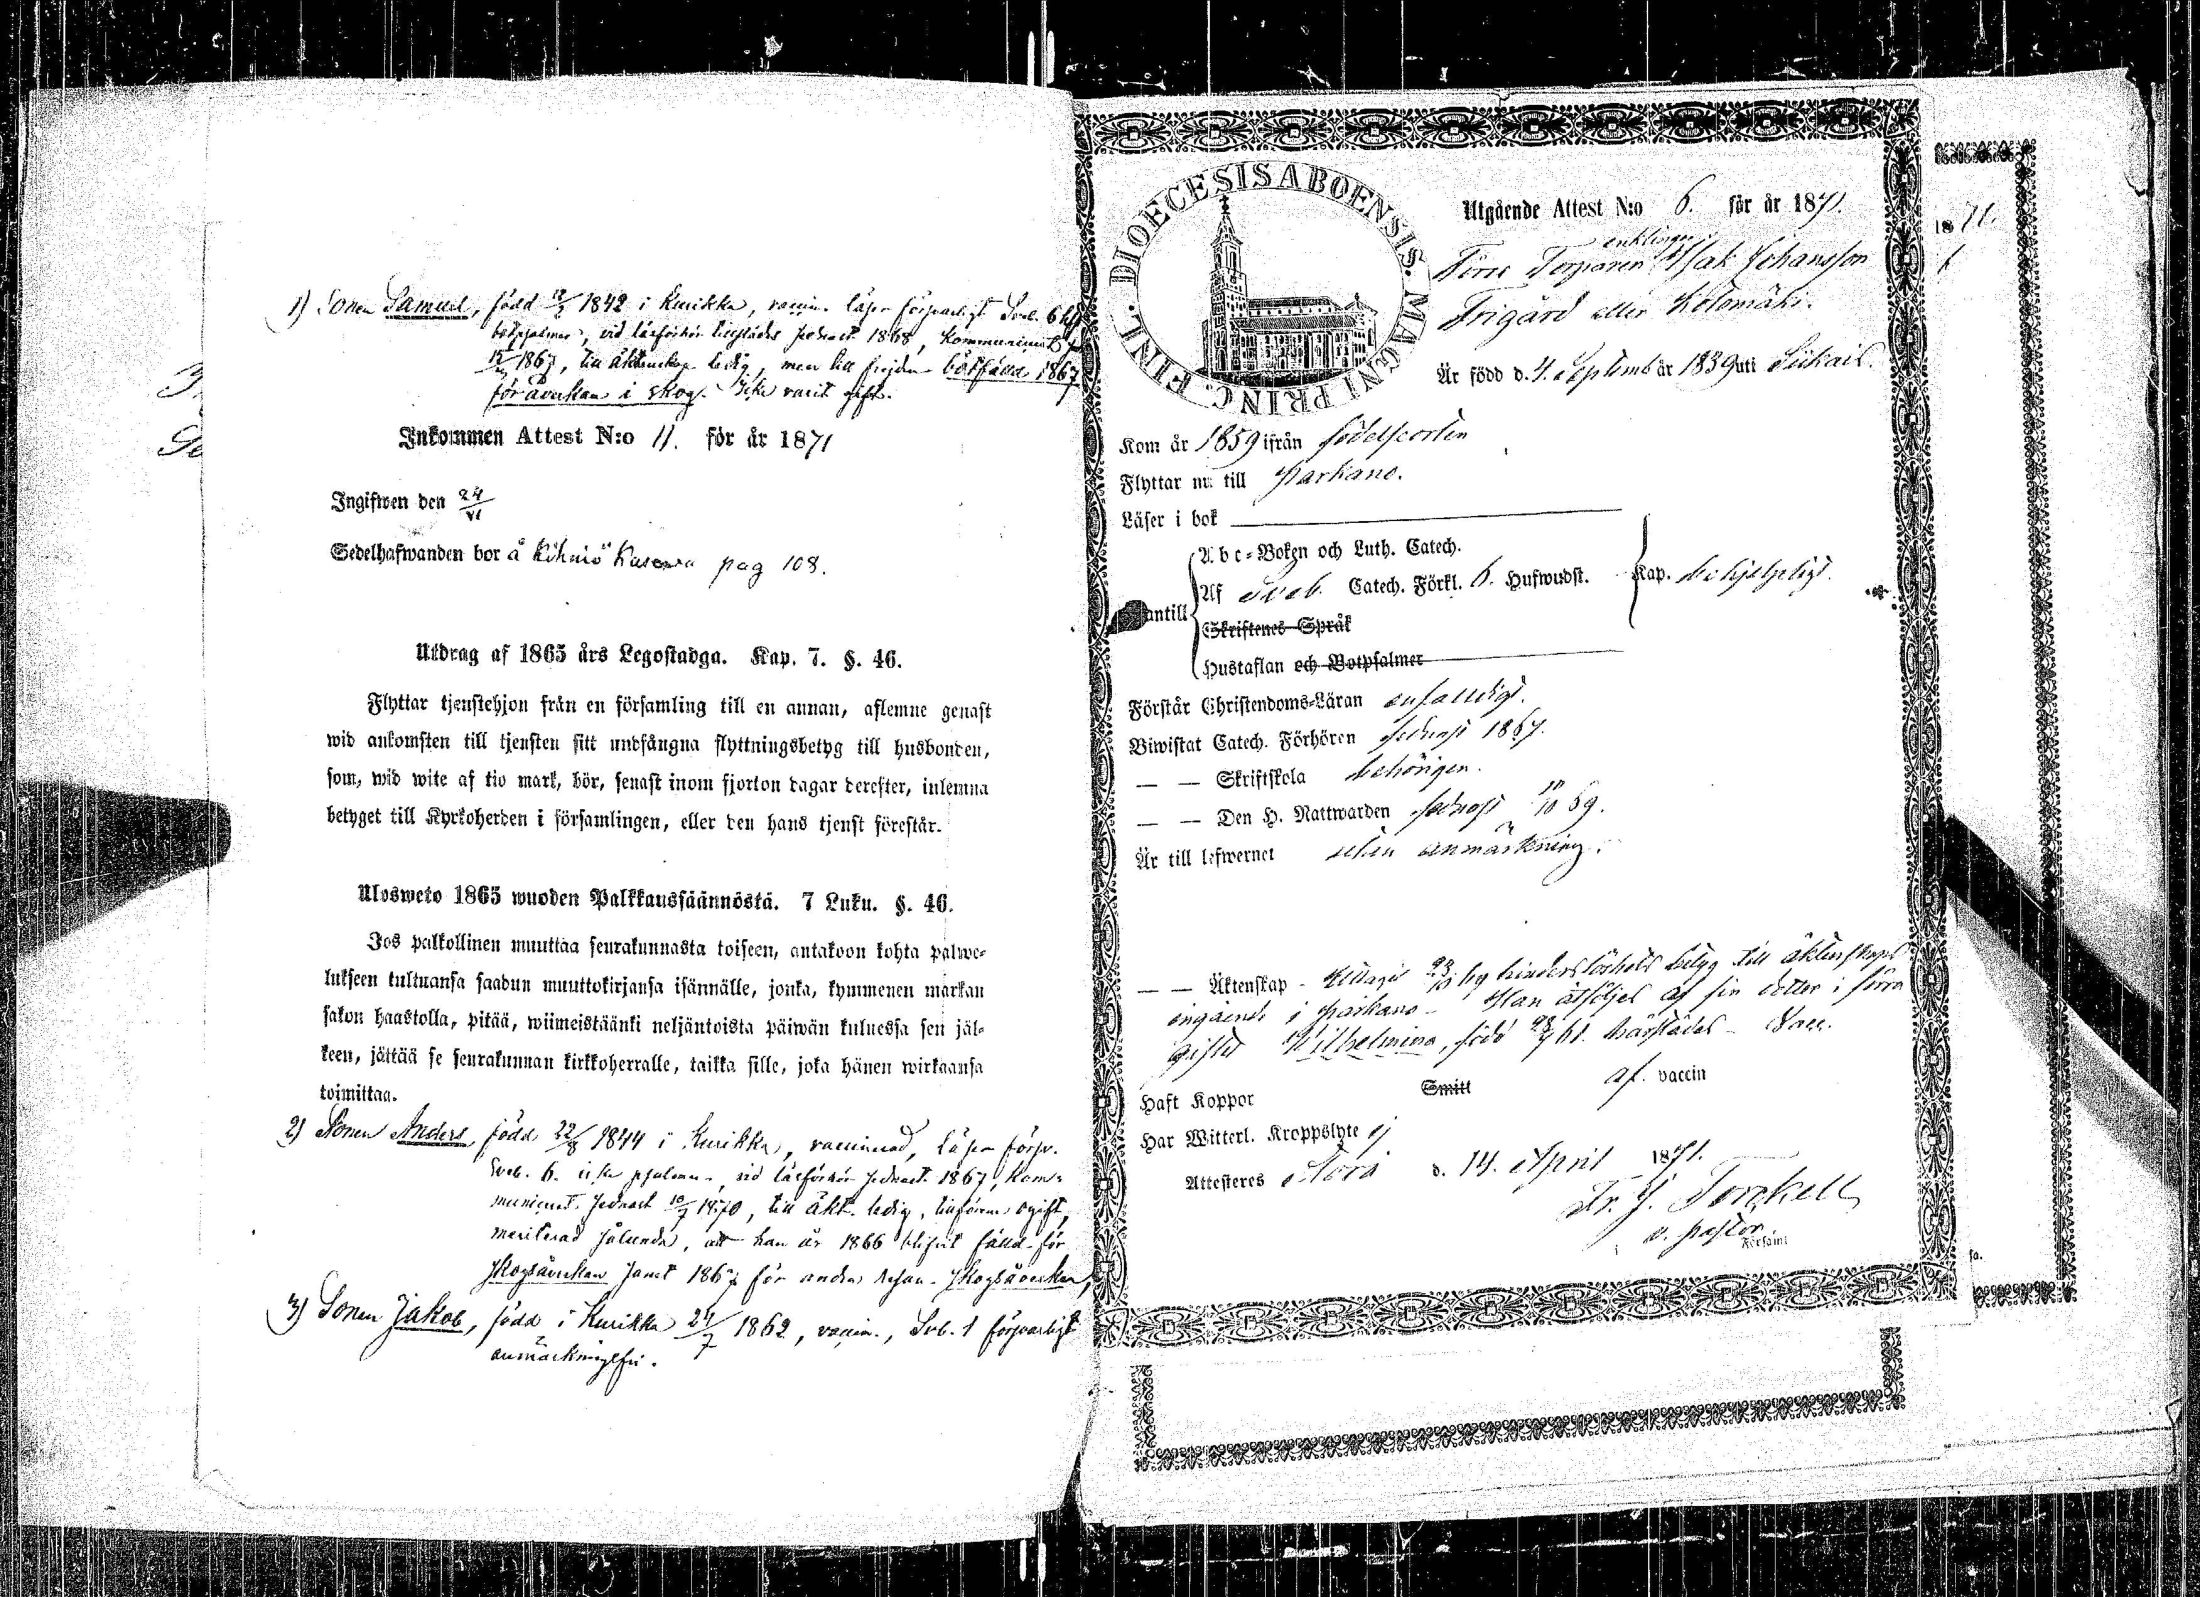 1) Sonen Samuel, född 18/3 1842 i Kurikka, vaccin. läser försvarligt Sveb. 6 hfst
botpsalmer, vid läsförhör tillstädes sednast 1868, kommunicerat
1867, till äktenskap ledig, men till frejden bötfälld 1867
för åverkan i skog. Icke varit gift.
Inkommen Attest N:o 11. för år 1871
Ingifwen den 24/VI
Sedelhafwanden bor å Kihniö Kasewa pag 108.
Utdrag af 1865 års Legostadga. Kap. 7. §. 46.
Flyttar tjenstehjon från en församling till en annan, aflemne genast
wid ankomsten till tjensten sitt undfångna flyttningsbetyg till husbonden,
som, wid wite af tio mark, bör, senast inom fjorton dagar derefter, inlemna
betyget till Kyrkoherden i församlingen, eller den hans tjenst förestår.
Ulosweto 1865 wuoden Palkkaussäännöstä. 7 Luku. §. 46.
Jos palkollinen muuttaa seurakunnasta toiseen, antakoon kohta palwe-
lukseen tultuansa saadun muuttokirjansa isännälle, jonka, kymmenen markan
sakon haastolla, pitää, wiimeistäänki neljäntoista päiwän kuluessa sen jäl-
keen, jättää se seurakunnan kirkkoherralle, taikka sille, joka hänen wirkaansa
toimittaa.
2) Sonen Anders, född 22/8 1844 i Kurikka, vaccinerad, läser försv.
Sveb. 6. icke psalmer, vid läsförhör sednast 1867, kom-
municerat sednast 10/7 1870, till äkt. ledig, tillförene ogift,
meriterad sålunda, att han år 1866 blifvit fälld för
skogsåverkan samt 1867 för andra resan skogsåverkan,
3) Sonen Jakob, född i Kurikka 24/7 1862, vaccin., Sveb. 1 försvarligt
anmärkningsfri.
DIOECESIS ABOENSIS. MAGNI PRINC. FINL.
Utgående Attest N:o 6. för år 1871.
enklingen
Förre Torparen Isak Johansson
Frigård eller Kotomäki.
Är född d. 4. Septemb år 1839 uti Siikais.
Kom år 1859 ifrån födelseorten
Flyttar nu till Parkano.
Läser i bok
A b c-Boken och Luth. Catech.
antill Af Sveb. Catech. Förkl. 6. Hufwudst. Kap. behjelpligt.
Skriftenes Språk
Hustaflan och Botpsalmer
Förstår Christendoms-Läran enfalldigt.
Biwistat Catech. Förhören sednast 1867.
— — Skriftskola behörigen.
— — Den H. Nattwarden sednast 10 69.
Är till lefwernet utan anmärkning.
— — Äktenskap - Uttagit 23/10 69 hinderslöshets betyg till äktenskaps
ingående i Parkano - Han åtföljes af sin dotter i förra
giftet Wilhelmina, född 61. härstädes - Vacc.
Haft Koppor Smitt af. vaccin
Har Witterl. Kroppslyte ej
Attesteres Storå d. 14. April 1871.
Fr. J. Torckell
v. pastor
Församl
1871.
sa.